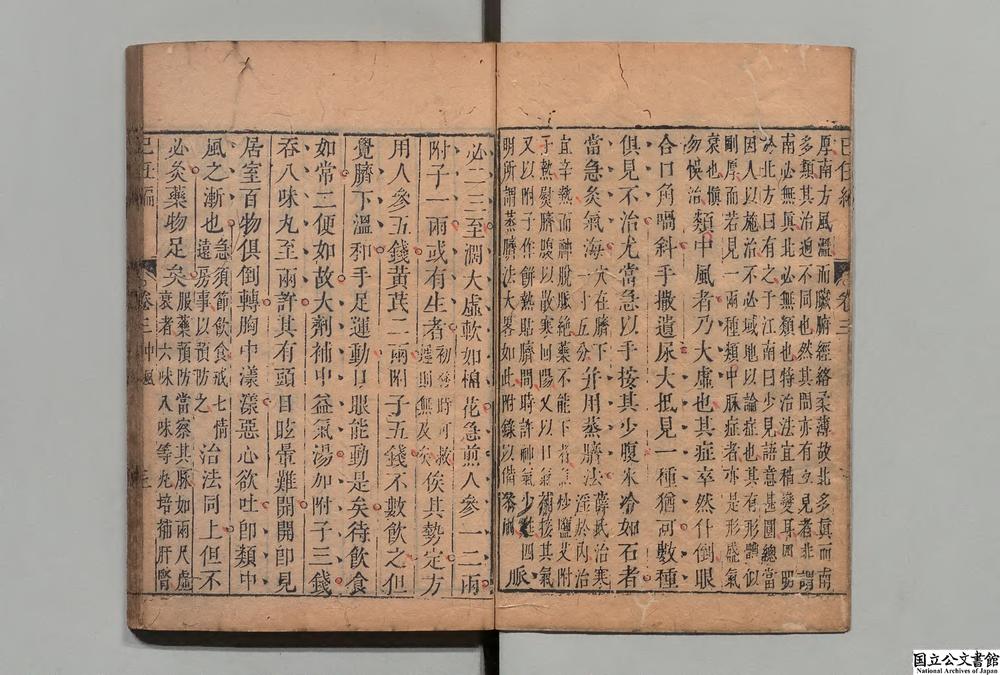 己任編 卷三
厚南方風溫而臟腑經絡柔薄故北多真而南
多類其治逈不同也然其間亦有互見者非謂
南必無真北必無類也特治法宜稍變耳固昭
於北方曰有之于江南曰少見語意甚圓總當
因人以施治不必域地以論症也其有形體似
剛厚而若見一兩種類中脉症者亦是形盛氣
衰也愼
勿悞治
類中風者乃大虛也其症卒然什倒眼
合口角喎斜手撒遺尿大抵見一種猶可數種
俱見不治尤當急以手按其少腹氷冷如石者
當急灸氣海
穴在臍下
一寸五分
幷用蒸臍法
薛武治寒
淫於內治
宜辛熱而臍脫脈絶藥不能下者急炒鹽艾附
子熱熨臍腹以散寒回陽又以口氣補接其氣
又以附子作餅熱貼臍間時許神氣少甦
明所謂蒸臍法大畧如此附錄以備叅用
四脈
必二三至濶大虛軟如楊花急煎人參一二兩
附子一兩或有生者
初發時可救
遲則無及矣
俟其勢定方
用人參五錢黃芪二兩附子五錢不數飲之但
覺臍下溫和手足運動口眼能動是矣待飲食
如常二便如故大劑補中益氣湯加附子三錢
吞八味丸至兩許其有頭目眩暈難開開即見
居室百物俱倒轉胸中漾漾惡心欲吐即類中
風之漸也
急須節飲食戒七情
遠房事以預防之
治法同上但不
必灸藥物足矣
服藥預防當察其脉如兩尺虛
衰者六味八味等丸培補肝腎
己任編 卷三 中風 三
国立公文書館
National Archives of Japan